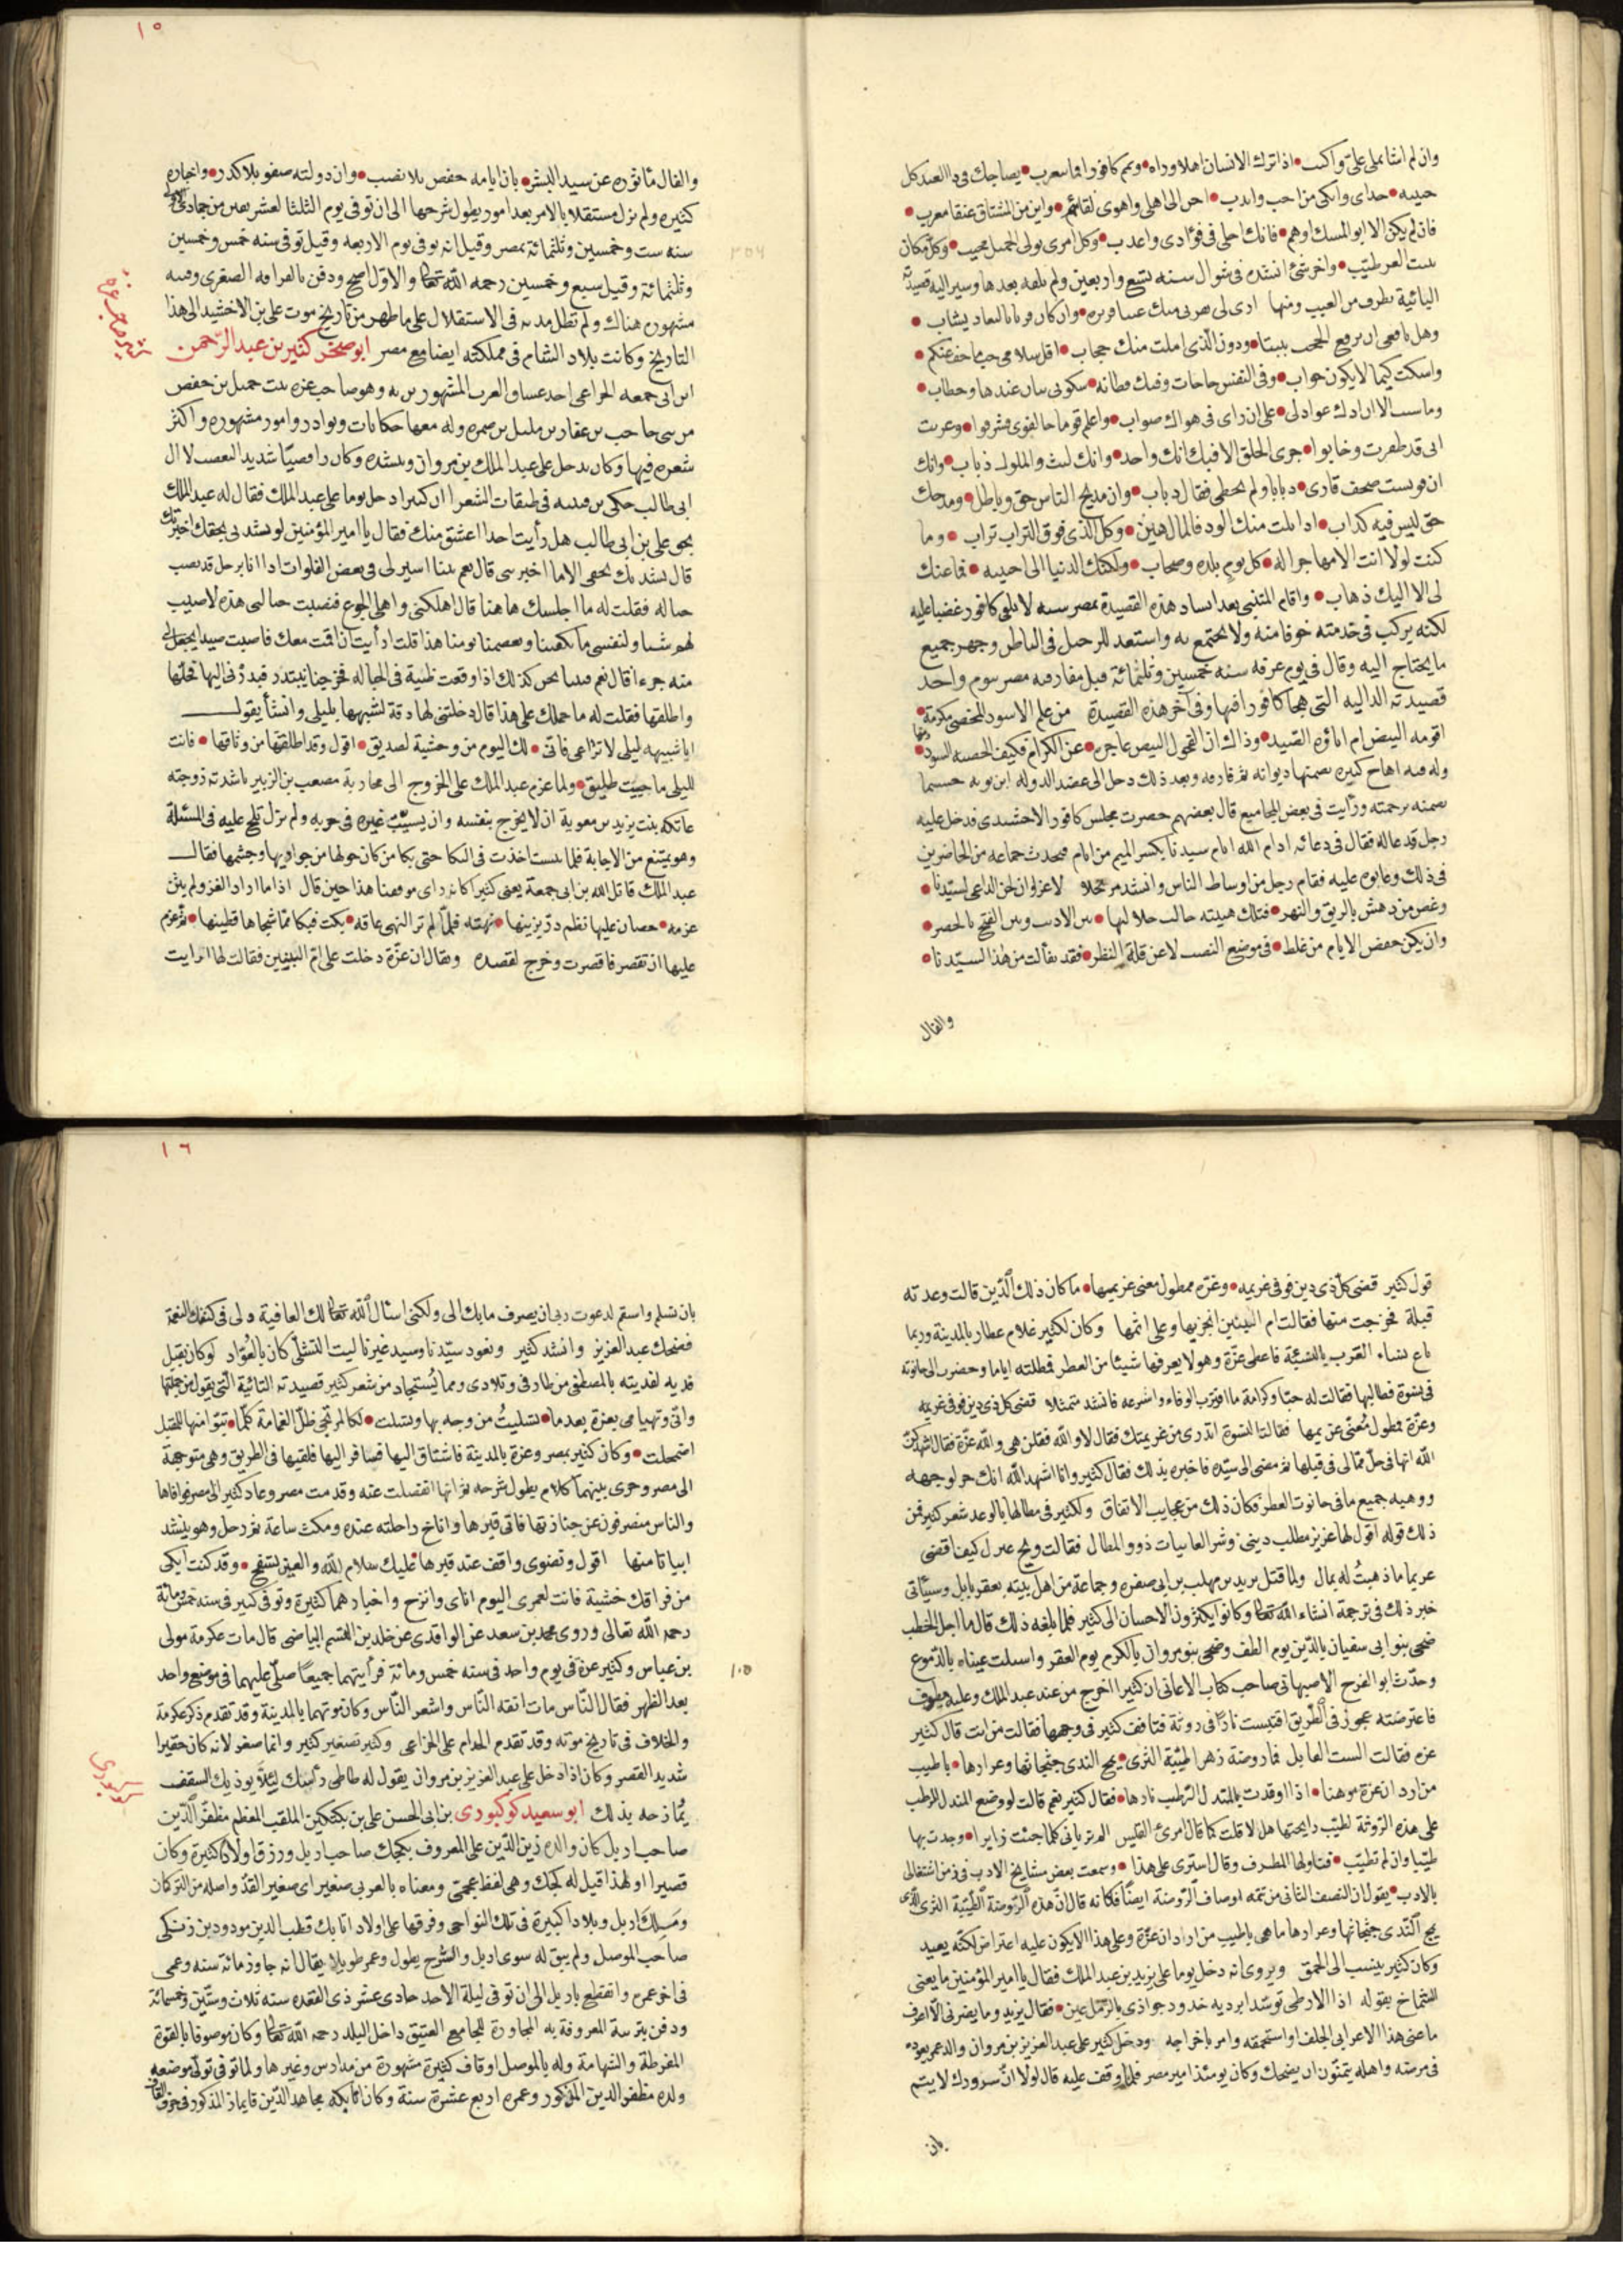 وان لم اشا تملى على واكتب • اذا ترك الانسان اهلا وراه • ويمم كافورا فما يتغرب • يضاحك فى ذا العيد كل
حبيبه • حذاى وابكى من احب واندب • احن الى اهلى واهوى لقائهم • واين من المشتاق عنقا مغرب •
فان لم يكن الا ابو المسك اوهم • فانك احلى فى فؤادى واعذب • وكل امرئ يولى الجميل محبب • وكل مكان
ينبت العز طيب • واخر شئ انشده فى شوال سنه تسع واربعين ولم يلقه بعدها وسير اليه قصيدته
البائية يطرف من العيب ومنها ارى لى بقربى منك عينا قريره • وان كان قربا بالبعاد يشاب •
وهل نافعى ان ترفع الحجب بيننا • ودون الذى املت منك حجاب • اقل سلامى حب ما خف عنكم •
واسكت كيما لا يكون جواب • وفى النفس حاجات وفيك فطانه • سكوتى بيان عندها وخطاب •
وما شئت الا ان ادل عواذلى • على ان راى فى هواك صواب • واعلم قوما خالفونى فشرقوا • وغربت
انى قد ظفرت وخابوا • جرى الخلق الا فيك انك واحد • وانك ليث والملوك ذياب • وانك
ان قويست صحف قارى • ذبابا ولم يخطى فقال ذباب • وان مديح الناس حق وباطل • ومدحك
حق ليس فيه كذاب • اذا نلت منك الود فالمال هين • وكل الذى فوق التراب تراب • وما
كنت لولا انت الا مهاجرا له • كل يوم بلده وصحاب • ولكنك الدنيا الى حبيبه • فما عنك
لى الا اليك ذهاب • واقام المتنبى بعد انشاد هذه القصيدة بمصر سنه لا يلقى كافور غضبا عليه
لكنه يركب فى خدمته خوفا منه ولا يجتمع به واستعد للرحيل فى الباطن وجهز جميع
ما يحتاج اليه وقال فى يوم عرفه سنه خمسين وثلثمائة قبل مفارقته مصر بيوم واحد
قصيدته الداليه التى هجا كافورا فيها وفى آخر هذه القصيدة من علم الاسود المخصى مكرمة •
اقومه البيض ام اباؤه الصيد • وذاك ان الفحول البيض عاجزه • عن الكرام فكيف الخصيه السود •
وله فيه اهاج كثيره تضمنها ديوانه ثم فارقه وبعد ذلك دخل الى عضد الدوله ابن بويه حسبما
تضمنه ترجمته ورأيت فى بعض المجاميع قال بعضهم حضرت مجلس كافور الاخشيدى فدخل عليه
رجل فدعا له فقال فى دعائه ادام الله ايام سيدنا بكسر الميم من ايام فتحدث جماعه من الحاضرين
فى ذلك وعابوه عليه فقام رجل من اوساط الناس وانشد مرتجلا لا غرو ان لحن الداعى لسيدنا •
وغص من دهش بالريق والبهر • فتلك هيبته حالت جلالتها • بين الاديب وبين الفتح بالحصر •
وان يكن خفض الايام من غلط • فى موضع النصب لا عن قلة النظر • فقد تفألت من هذا لسيدنا •
والفال
١٥
والفال مأثوره عن سيد البشر • بان ايامه خفض بلا نصب • وان دولته صفو بلا كدر • واخباره
كثيره ولم يزل مستقلا بالامر بعد امور يطول شرحها الى ان توفى يوم الثلثا لعشر بقين من جمادى الاولى
سنه ست وخمسين وثلثمائة بمصر وقيل انه توفى يوم الاربعه وقيل توفى سنه خمس وخمسين
وثلثمائة وقيل سبع وخمسين رحمه الله تعالى والاول اصح ودفن بالقرافه الصغرى وقبته
مشهوره هناك ولم تطل مدته فى الاستقلال على ما ظهر من تاريخ موت على بن الاخشيد الى هذا
التاريخ وكانت بلاد الشام فى مملكته ايضا مع مصر ابو صخر كثير بن عبد الرحمن
كثير صاحب عزه
ابن ابى جمعه الخزاعى احد عشاق العرب المشهورين به وهو صاحب عزه بنت جميل بن حفص
من بنى حاجب بن غفار بن مليل بن ضمره وله معها حكايات ونوادر وامور مشهوره واكثر
شعره فيها وكان يدخل على عبد الملك بن مروان وينشده وكان رافضيا شديد التعصب لال
ابى طالب حكى بن قتيبه فى طبقات الشعرا ان كثيرا دخل يوما على عبد الملك فقال له عبد الملك
بحق على بن ابى طالب هل رأيت احدا اعشق منك فقال يا امير المؤمنين لو نشدتنى بحقك اخبرتك
قال نشدتك بحقى الا ما اخبرتنى قال نعم بينا اسير لى فى بعض الفلوات اذا انا برجل قد نصب
حباله فقلت له ما اجلسك هاهنا قال اهلكنى واهلى الجوع فنصبت حبالتى هذه لاصيب
لهم شيا ولنفسى ما يكفينا ويعصمنا يومنا هذا قلت ارأيت ان اقمت معك فاصبت صيدا يجعل لى
منه جزءا قال نعم فبينا نحن كذلك اذا وقعت ظبية فى الحباله فخرجنا نبتدر فبدرنى اليها فحلها
واطلقها فقلت له ما حملك على هذا قال دخلتنى لها رقة لشبهها بليلى وانشأ يقول
ايا شبيهه ليلى لا تراعى فانى • لك اليوم من وحشية لصديق • اقول وقد اطلقتها من وثاقها • فانت
لليلى ما حييت طليق • ولما عزم عبد الملك على الخروج الى محاربة مصعب بن الزبير ناشدته زوجته
عاتكه بنت يزيد بن معوية ان لا يخرج بنفسه وان يستنيب غيره فى حربه ولم تزل تلح عليه فى المسئلة
وهو يمتنع من الاجابة فلما يئست اخذت فى البكا حتى بكا من كان حولها من جواريها وحشمها فقال
عبد الملك قاتل الله بن ابى جمعة يعنى كثيرا كانه راى موقفنا هذا حين قال اذا ما اراد الغزو لم يثن
عزمه • حصان عليها نظم در يزينها • نهته فلما لم تر النهى عاقه • بكت فبكا مما شجاها قطينها • ثم عزم
عليها ان تقصر فاقصرت وخرج لقصده ويقال ان عزة دخلت على ام البنين فقالت لها ارايت
قول كثير قضى كل ذى دين فوفى غريمه • وعزه ممطول معنى غريمها • ما كان ذلك الدين قالت وعدته
قبلة فخرجت منها فقالت ام البنين انجزيها وعلى اثمها وكان لكثير غلام عطار بالمدينة وربما
باع نساء العرب بالنسئة فاعطى عزة وهو لا يعرفها شيئا من العطر فمطلته اياما وحضرت الى حانوته
فى نسوة فطالبها فقالت له حبا وكرامة ما اقرب الوفاء واسرعه فانشد متمثلا قضى كل ذى دين فوفى غريمه
وعزة ممطول معنى غريمها فقالت النسوة اتدرى من غريمتك فقال لا والله فقلن هى والله عزة فقال اشهدكن
الله انها فى حل مما لى فى قبلها ثم مضى الى سيده فاخبره بذلك فقال كثير وانا اشهد الله انك حر لوجهه
ووهبه جميع ما فى حانوت العطر فكان ذلك من عجايب الاتفاق ولكثير فى مطالها بالوعد شعر كثير فمن
ذلك قوله اقول لها عزيز مطلت دينى • وشر الغانيات ذوو المطال فقالت ويح غيرك كيف اقضى
غريما ما ذهبت له بمال ولما قتل يزيد بن مهلب بن ابى صفره وجماعة من اهل بيته بعقر بابل وسيأتى
خبر ذلك فى ترجمة انشاء الله تعالى وكانوا يكثرون الاحسان الى كثير فلما بلغه ذلك قال ما اجل الخطب
ضحى بنو ابى سفيان بالدين يوم الطف وضحى بنو مروان بالكرم يوم العقر واسبلت عيناه بالدموع
وحدث ابو الفرج الاصبهانى صاحب كتاب الاغانى ان كثيرا خرج من عند عبد الملك وعليه مطرف
فاعترضته عجوز فى الطريق اقتبست نارا فى روثة فتافف كثير فى وجهها فقالت من انت قال كثير
عزه فقالت الست القايل فما روضة زهرا طيبة الثرى • يمج الندى جثجاثها وعرارها • باطيب
من اردان عزة موهنا • اذا اوقدت بالمندل الرطب نارها • فقال كثير نعم قالت لو وضع المندل الرطب
على هذه الروثة لطيب رايحتها هل لا قلت كما قال امرئ القيس الم تريانى كلما جئت زايرا • وجدت بها
طيبا وان لم تطيب • فناولها المطرف وقال استرى على هذا • وسمعت بعض مشايخ الادب فى زمن اشتغالى
بالادب • يقول ان النصف الثانى من تتمه اوصاف الروضة ايضا فكانه قال ان هذه الروضة الطيبة الثرى التى
يمج الندى جثجاثها وعرارها ما هى باطيب من اردان عزة وعلى هذا لا يكون عليه اعتراض لكنه بعيد
وكان كثير ينسب الى الحمق ويروى انه دخل يوما على يزيد بن عبد الملك فقال يا امير المؤمنين ما يعنى
الشماخ بقوله اذا الارطى توسد ابرديه خدود جوازى بالرمل عين • فقال يزيد وما يضرنى الا اعرف
ما عنى هذا الاعرابى الجلف واستحمقه وامر باخراجه ودخل كثير على عبد العزيز بن مروان والد عمر يعوده
فى مرضه واهله يتمنون ان يضحك وكان يومئذ امير مصر فلما وقف عليه قال لولا ان سرورك لا يتم
بان
١٦
بان تسلم واسقم لدعوت ربى ان يصرف ما بك الى ولكنى اسئال الله تعالى لك العافية ولى فى كنفك النعمة
فضحك عبد العزيز وانشد كثير ونعود سيدنا وسيد غيرنا ليت التشكى كان بالعواد لو كان يقبل
فديه لفديته بالمصطفى من طارفى وتلادى ومما يستجاد من شعر كثير قصيدته التائية التى يقول من جملتها
وانى وتهيامى بعزة بعد ما • تسليت من وجد بها وتسلت • لكالمرتجى ظل الغمامة كلما • تبوا منها للمقيل
اضمحلت • وكان كثير بمصر وعزة بالمدينة فاشتاق اليها فسافر اليها فلقيها فى الطريق وهى متوجهة
الى مصر وجرى بينهما كلام يطول شرحه ثم انها انفصلت عنه وقدمت مصر وعاد كثير الى مصر فوافاها
والناس منصرفون عن جنازتها فاتى قبرها واناخ راحلته عنده ومكث ساعة ثم رحل وهو ينشد
ابياتا منها اقول ونضوى واقف عند قبرها • عليك سلام الله والعين تسفح • وقد كنت ابكى
من فراقك خشية فانت لعمرى اليوم اناى وانزح واخبارهما كثيرة وتوفى كثير فى سنه خمس ومائة
رحمه الله تعالى وروى محمد بن سعد عن الواقدى عن خلد بن القسم البياضى قال مات عكرمة مولى
بن عباس وكثير عزة فى يوم واحد فى سنه خمس ومائة فرأيتهما جميعا صلى عليهما فى موضع واحد
بعد الظهر فقال الناس مات افقه الناس واشعر الناس وكان موتهما بالمدينة وقد تقدم ذكر عكرمة
والخلاف فى تاريخ موته وقد تقدم الكلام على الخزاعى وكثير تصغير كثير وانما صغر لانه كان حقيرا
شديد القصر وكان اذا دخل على عبد العزيز بن مروان يقول له طاطى رأسك ليئلا يوذيك السقف
يمازحه بذلك ابو سعيد كوكبورى بن ابى الحسن على بن بكتكين الملقب المعظم مظفر الدين
صاحب اربل كان والده زين الدين على المعروف بكجك صاحب اربل ورزق اولادا كثيرة وكان
قصيرا ولهذا قيل له كجك وهى لفظ عجمى ومعناه بالعربى صغير اى صغير القد واصله من التركان
وملك اربل وبلادا كبيرة فى تلك النواحى وفرقها على اولاد اتابك قطب الدين مودود بن زنكى
صاحب الموصل ولم يبق له سوى اربل والشرح يطول وعمر طويلا يقال انه جاوز مائة سنه وعمى
فى اخر عمره وانقطع باربل الى ان توفى ليلة الاحد حادى عشر ذى القعده سنه ثلاث وستين وخمسمائة
ودفن بتربته المعروفة به المجاورة للجامع العتيق داخل البلد رحمه الله تعالى وكان موصوفا بالقوة
المفرطة والشهامة وله بالموصل اوقاف كثيرة مشهورة من مدارس وغيرها ولما توفى تولى موضعه
ولده مظفر الدين المذكور وعمره اربع عشرة سنة وكان اتابكه مجاهد الدين قايماز المذكور فى حرف القاف